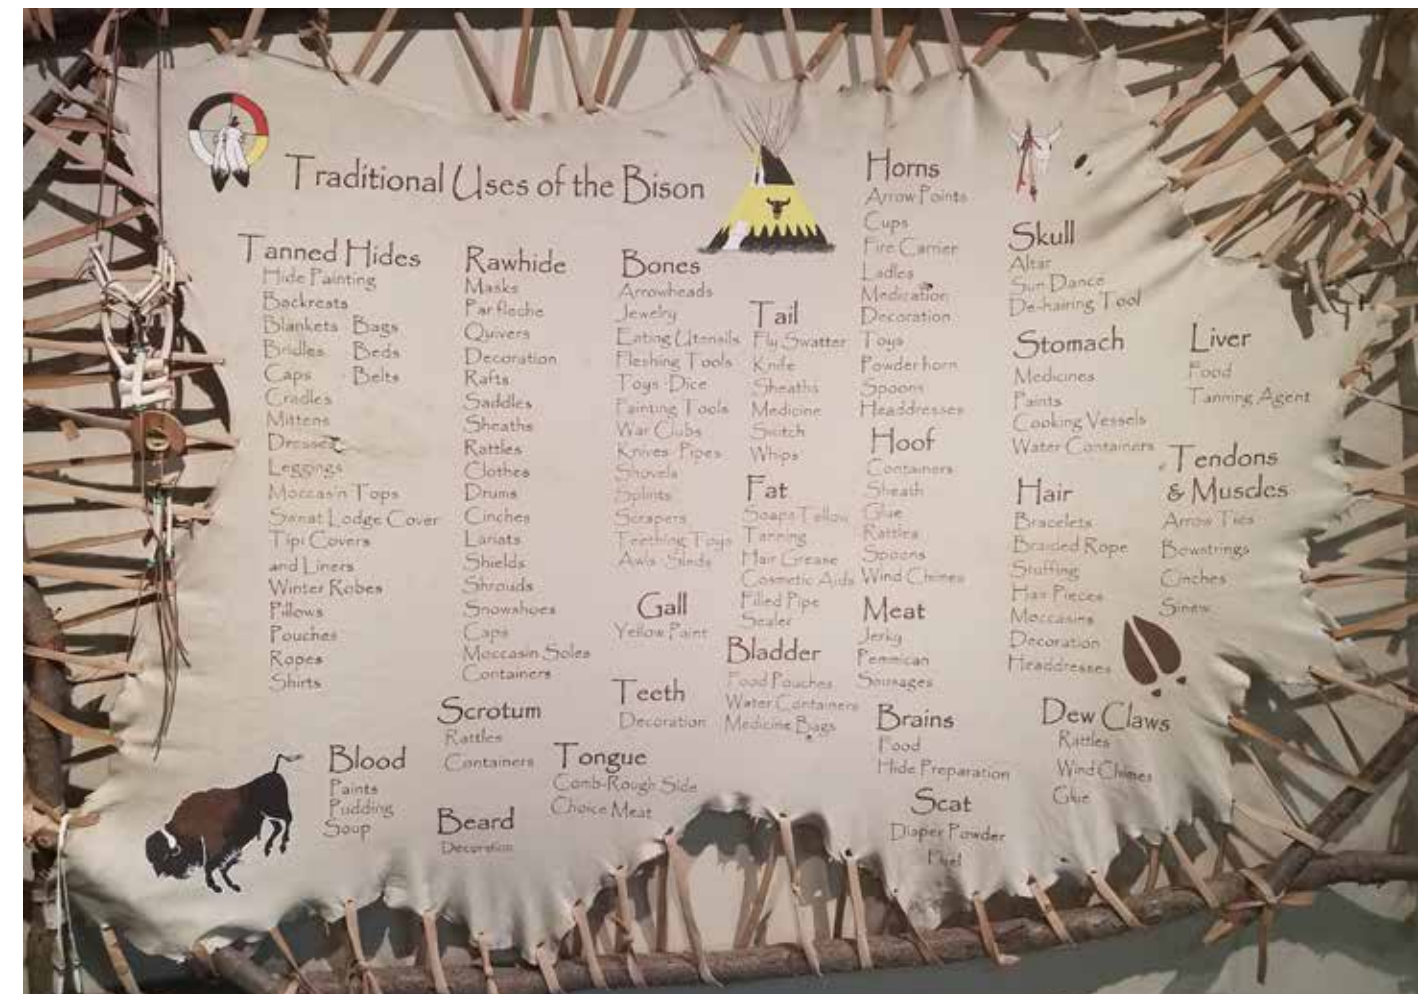 Traditional Uses of the Bison
Tanned Hides
Hide Painting
Backrests
Blankets Bags
Bridles Beds
Caps Belts
Cradles
Mittens
Dresses
Leggings
Moccasin Tops
Sweat Lodge Cover
Tipi Covers
and Liners
Winter Robes
Pillows
Pouches
Ropes
Shirts
Rawhide
Masks
Parfleche
Quivers
Decoration
Rafts
Saddles
Sheaths
Rattles
Clothes
Drums
Cinches
Lariats
Shields
Shrouds
Snowshoes
Caps
Moccasin Soles
Containers
Bones
Arrowheads
Jewelry
Eating Utensils
Fleshing Tools
Toys Dice
Painting Tools
War Clubs
Knives Pipes
Shovels
Splints
Scrapers
Teething Toys
Awls Sleds
Gall
Yellow Paint
Teeth
Decoration
Tail
Fly Swatter
Knife
Sheaths
Medicine
Switch
Whips
Fat
Soaps Tallow
Tanning
Hair Grease
Cosmetic Aids
Filled Pipe
Sealer
Bladder
Food Pouches
Water Containers
Medicine Bags
Horns
Arrow Points
Cups
Fire Carrier
Ladles
Medication
Decoration
Toys
Powderhorn
Spoons
Headdresses
Hoof
Containers
Sheath
Glue
Rattles
Spoons
Wind Chimes
Meat
Jerky
Pemmican
Sausages
Brains
Food
Hide Preparation
Scat
Diaper Powder
Fuel
Skull
Altar
Sun Dance
De-hairing Tool
Stomach
Medicines
Paints
Cooking Vessels
Water Containers
Hair
Bracelets
Braided Rope
Stuffing
Hair Pieces
Moccasins
Decoration
Headdresses
Liver
Food
Tanning Agent
Tendons
& Muscles
Arrow Ties
Bowstrings
Cinches
Sinew
Dew Claws
Rattles
Wind Chimes
Glue
Scrotum
Rattles
Containers
Tongue
Comb-Rough Side
Choice Meat
Blood
Paints
Pudding
Soup
Beard
Decoration